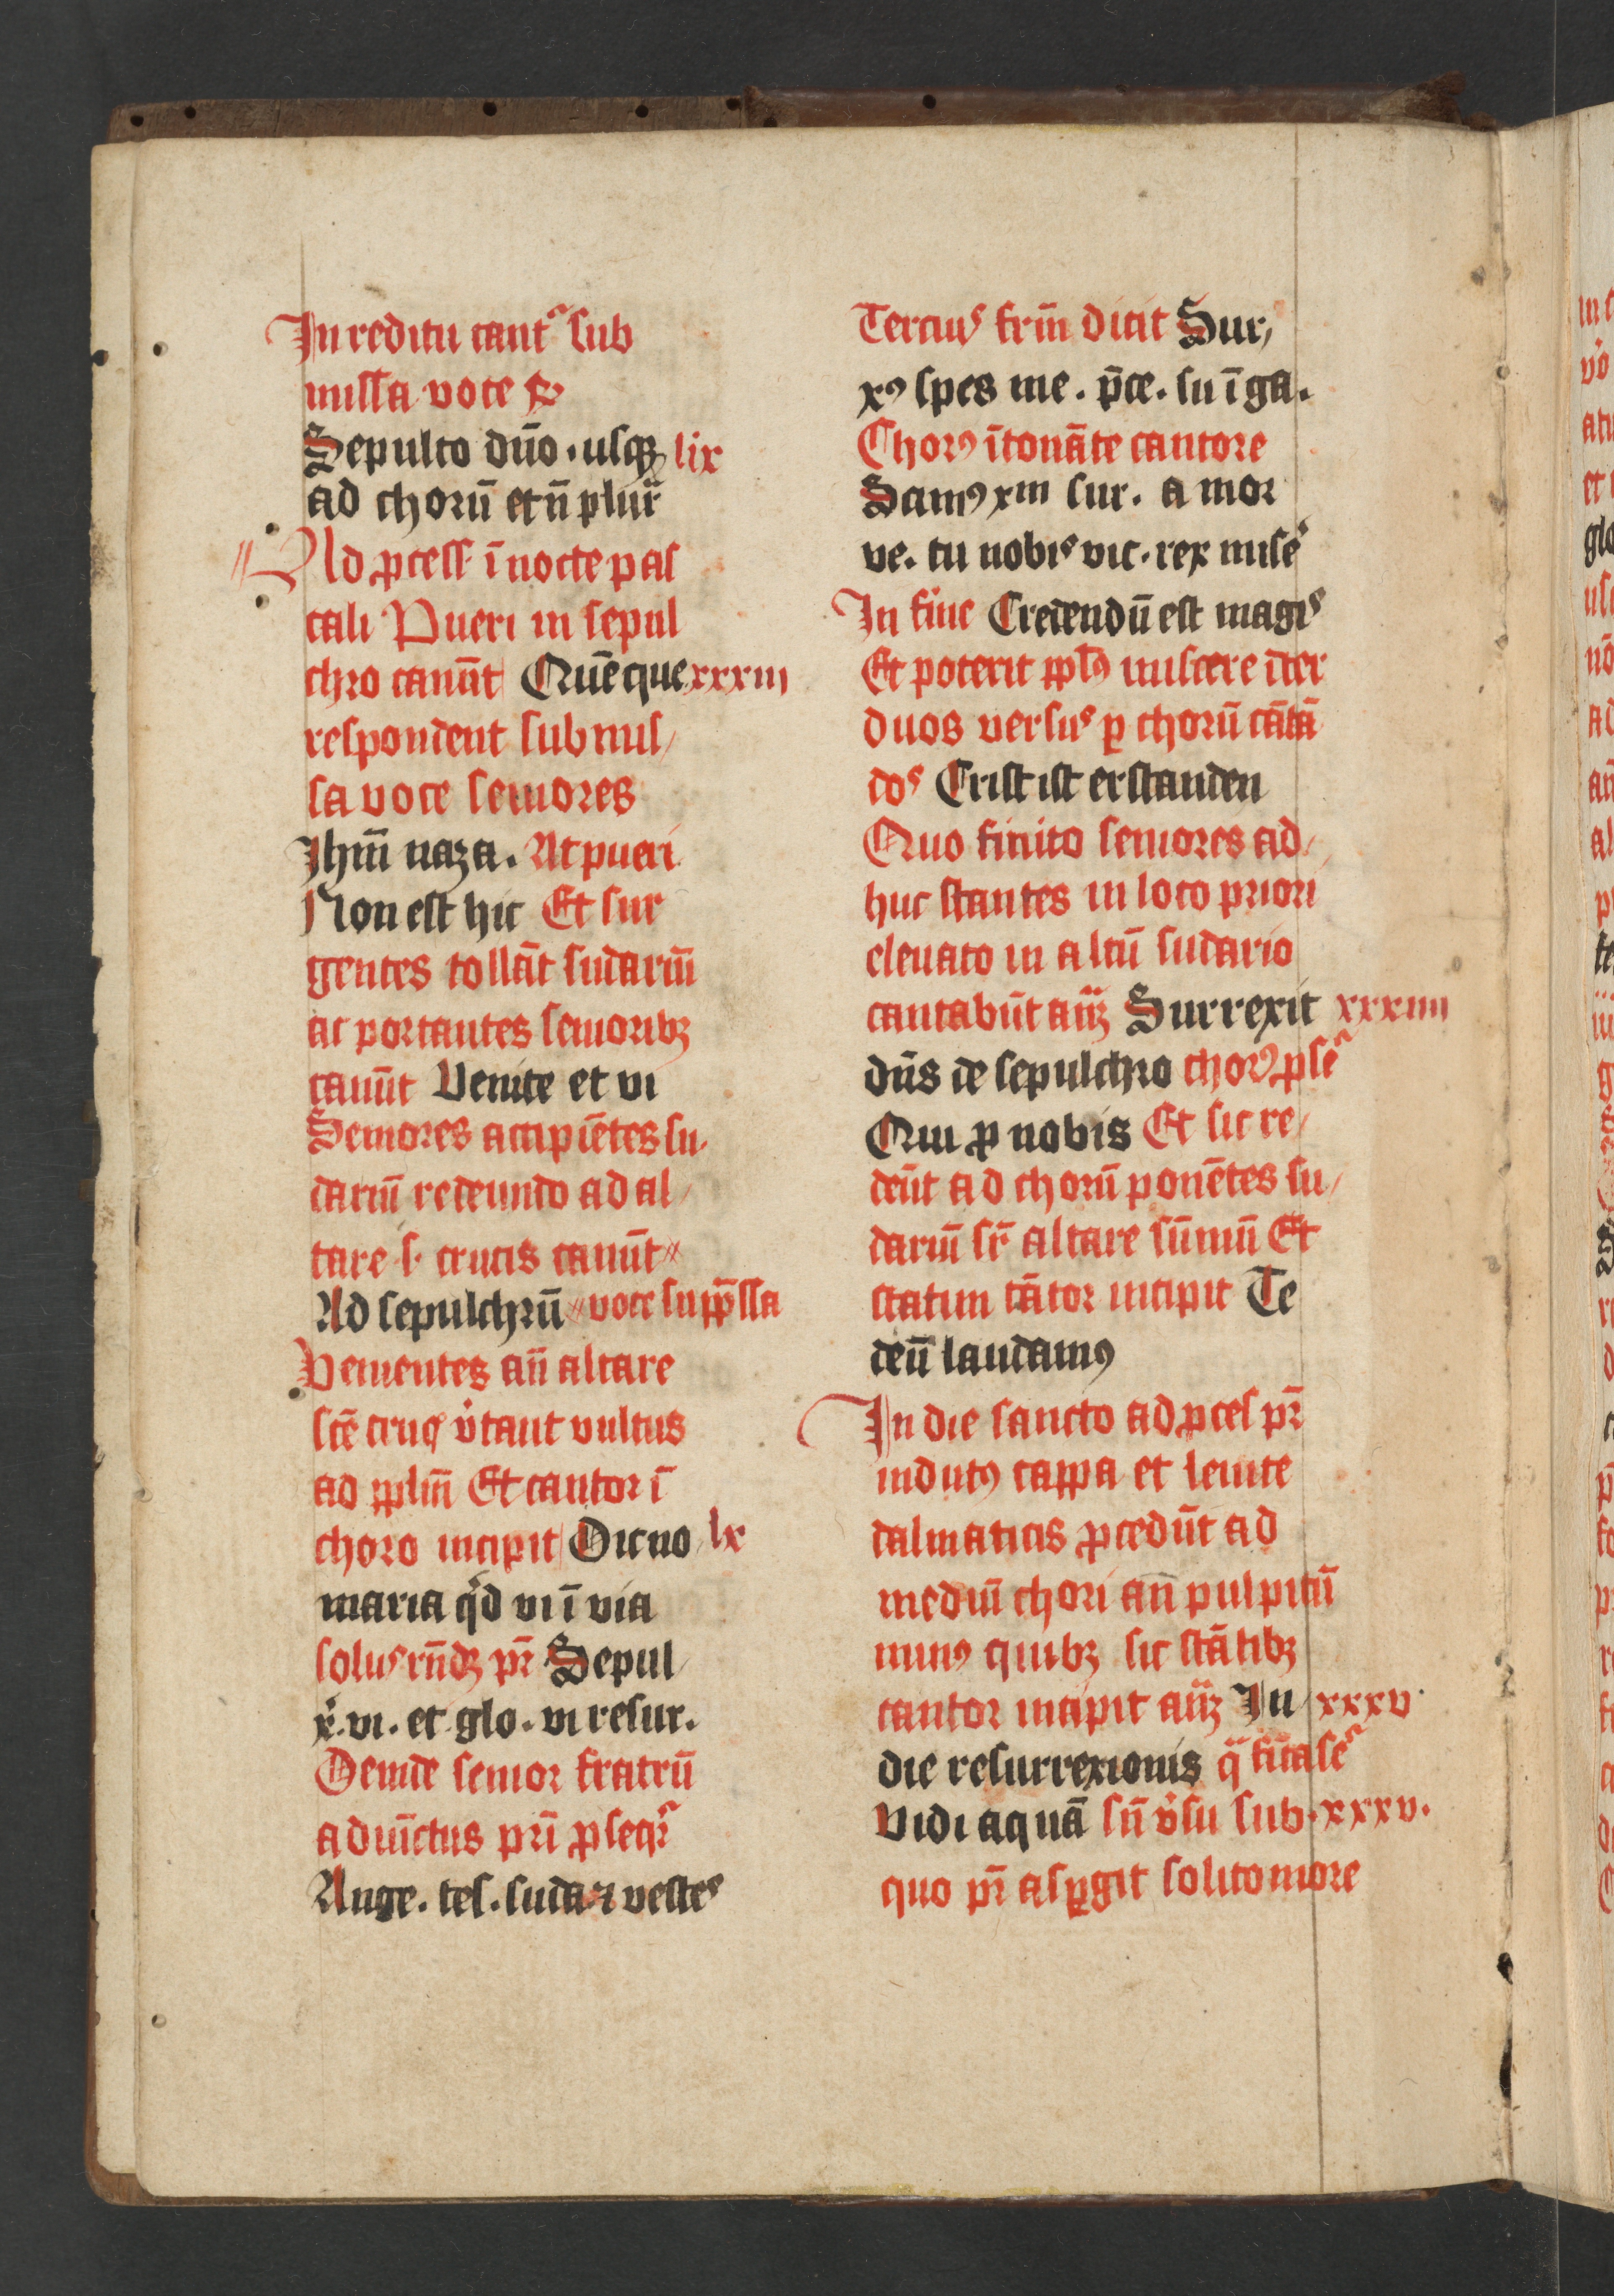 In reditu cantʳ sub
missa voce ℟
Sepulto dn̄o · usqꝫ lix
ad chorū et n̄ plurꝭ
Ad ꝓcess · ī nocte pas
cali Pueri in sepul
chro canūt Quē que xxxiii
respondent submis/
sa voce seniores
Jhm̄ naza . At pueri
Non est hic Et sur
gentes tollāt sudariū
ac portantes senioribꝫ
canūt Venite et vi
Seniores accipiētes su/
dariū redeundo ad al/
tare · s · crucis canūt〃
Ad sepulchrū 〃voce supp̄ssa
Venientes an̄ altare
scē crucꝭ v̓tant vultus
ad pplm̄ Et cantor ī
choro incipit Dic no lx
maria qͥd vi ī via
solus rn̄dꝫ pr̄ Sepul/
xͥ · vi · et glo · vi resur .
Deinde senior fratrū
adiūctus pri̅ ꝓseqr̄
Ange . tes . suda ⁊ vestes
Tercius frm̄ dicit Sur/
xꝰ spes me . p̄ce . su ī ga .
Chorꝰ ītonāte cantore
Scimꝰ xm sur . a mor
ve . tu nobis vic · rex mise͛
In fine Credendū est magis
Et poterit pplꝰ miscere īter
duos versus ꝑ chorū cātā
dos Crist ist erstanden
Quo finito seniores ad/
huc stantes in loco priori
elevato in altū sudario
cantabūt añꝫ Surrexit xxxiiii
dn̄s de sepulchro chorꝰ ꝓseʳ
Qui ꝓ nobis Et sic re/
deūt ad chorū ponētes su/
dariū sr̄ altare sūmū Et
statim cātor incipit Te
deū laudamꝰ
In die sancto ad ꝓces pr̄
indutꝰ cappa et levite
dalmaticis ꝓcedūt ad
mediū chori an̄ pulpitū
minꝰ quibꝫ sic stātibꝫ
cantor incipit añꝫ In xxxv ·
die resurrexionis qᷓ fīita seʳ
Vidi aquā sn̄ v̓su sub · xxxv ·
quo pr̄ aspꝑgit solito more